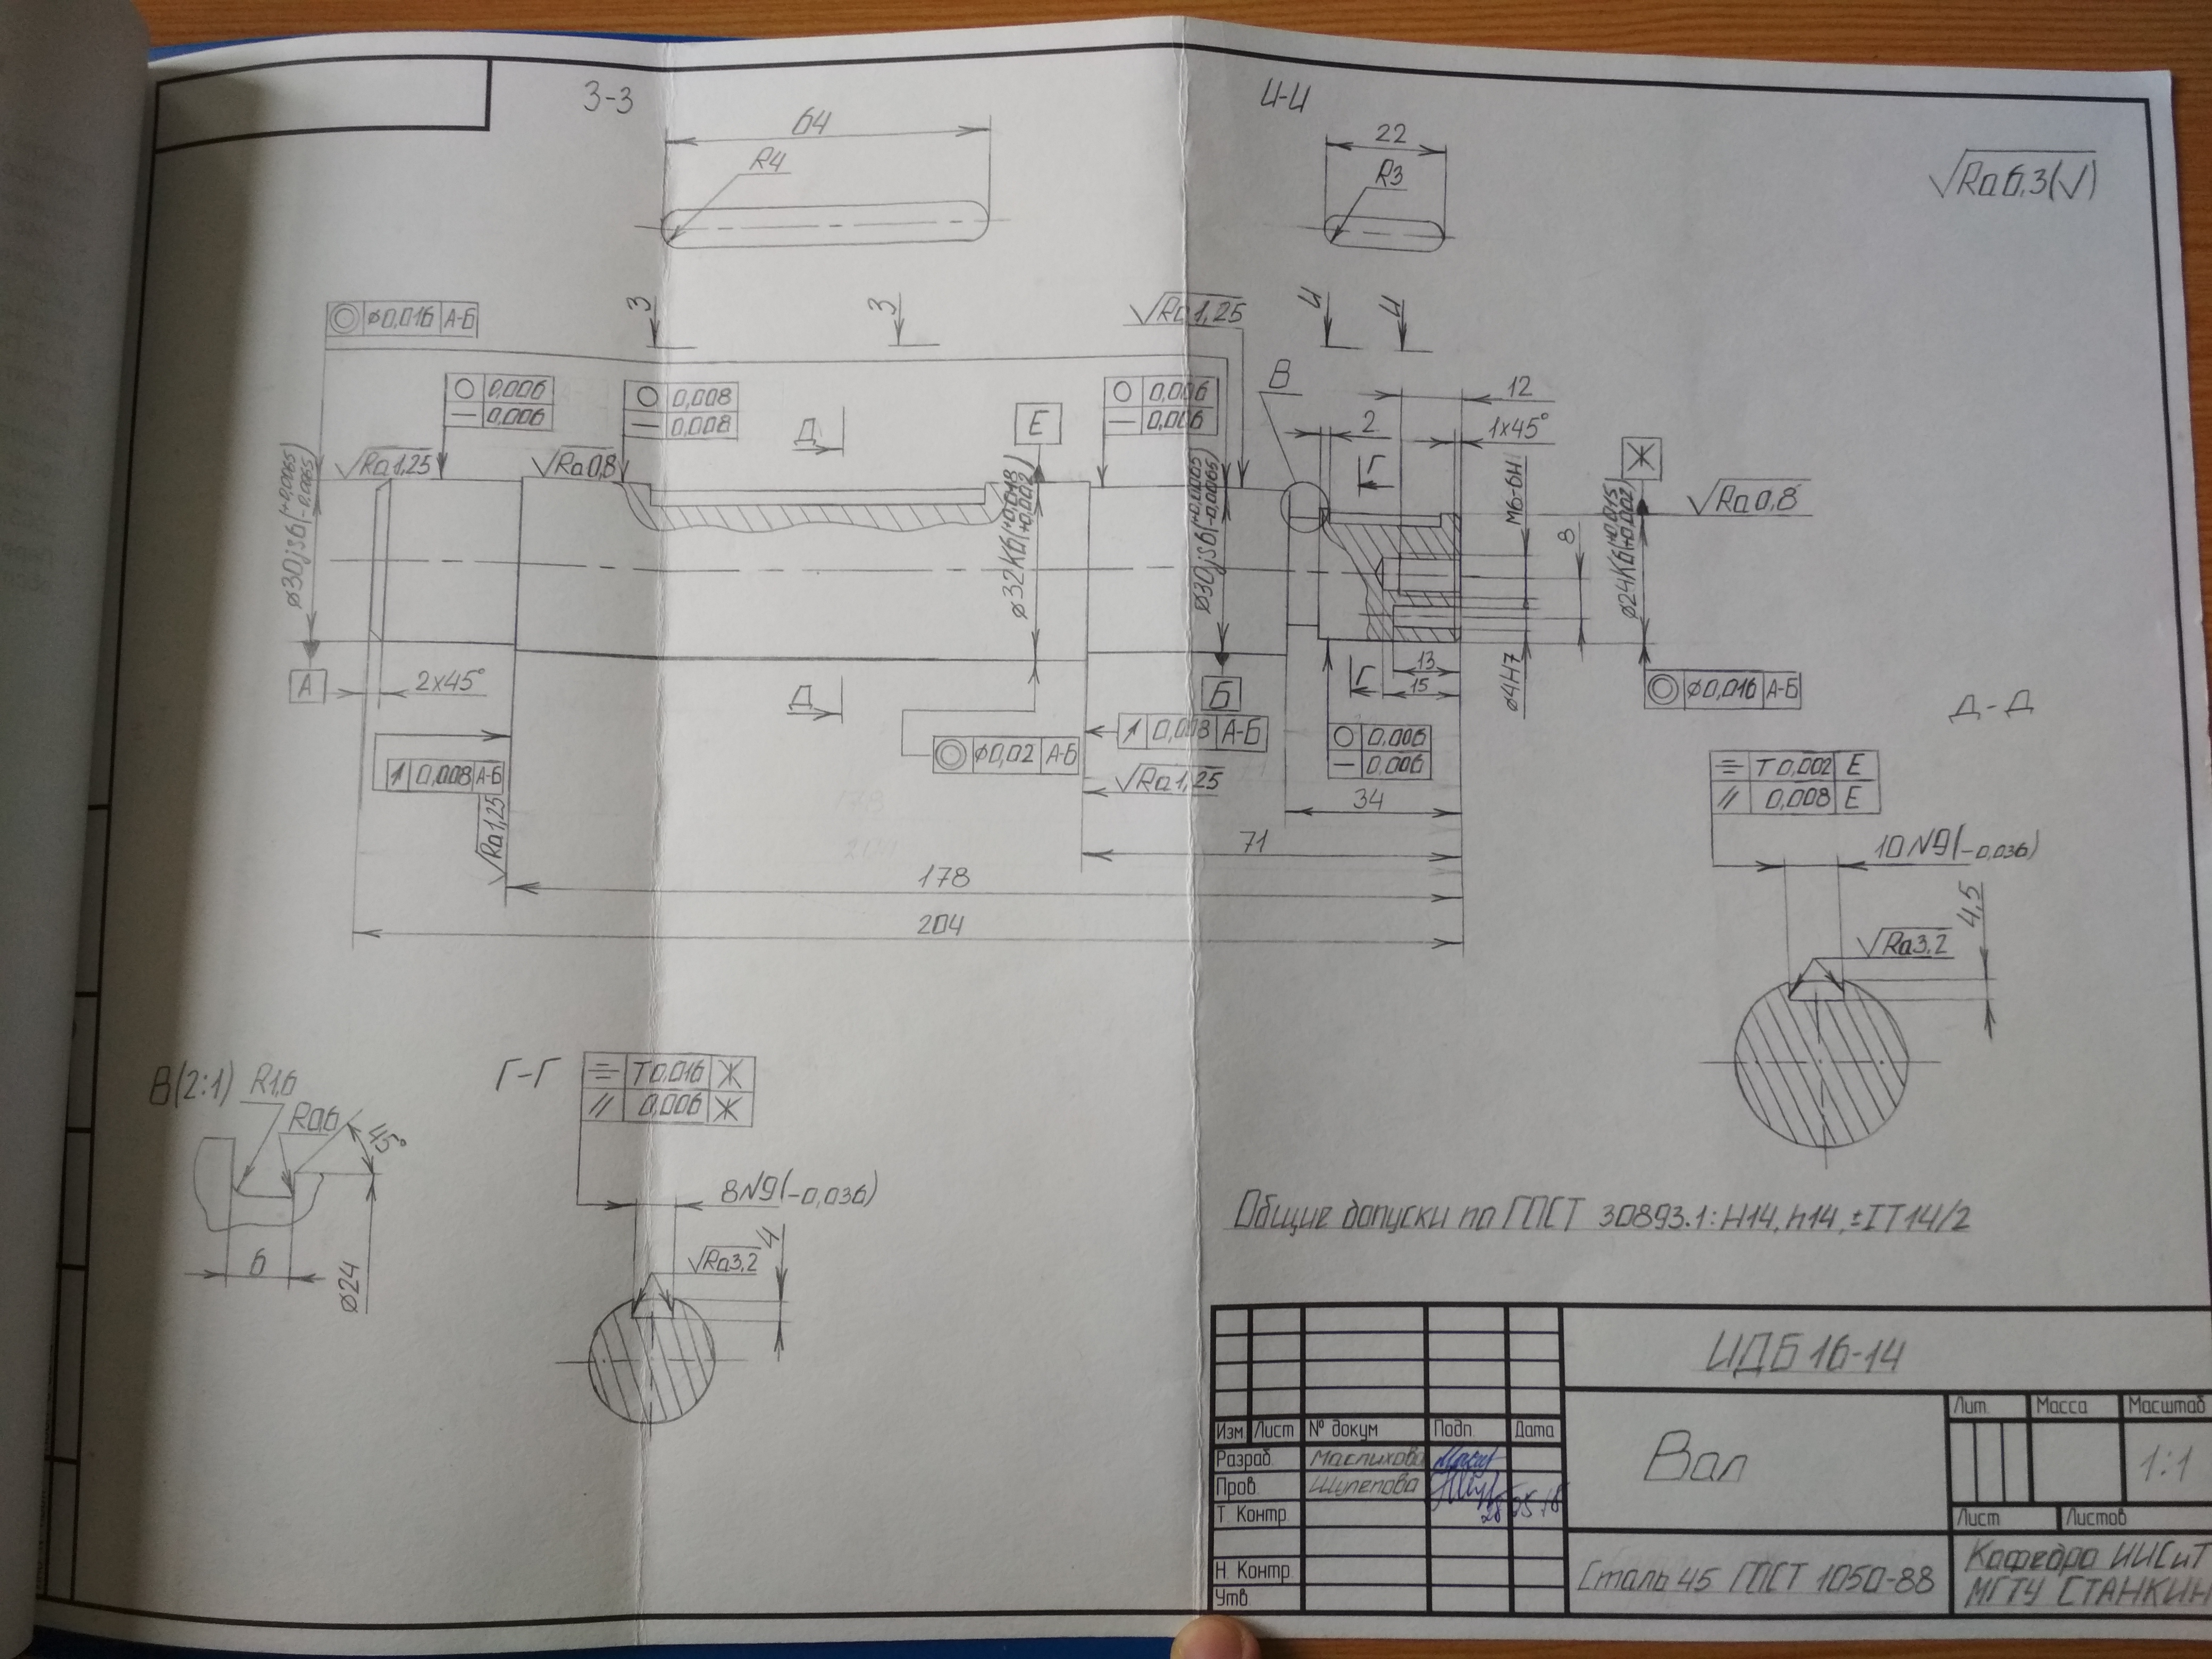 З-З
И-И
64
R4
22
R3
√Ra6,3(√)
⌀0,016 А-Б
З
З
√Ra1,25
И
И
○ 0,006
— 0,006
○ 0,008
— 0,008
Д
Е
○ 0,006
— 0,006
В
12
2
1х45°
Г
Ж
√Ra1,25
√Ra0,8
√Ra0,8
⌀30js6(+0,0065 -0,0065)
⌀32К6(+0,018 +0,002)
⌀30js6(+0,0065 -0,0065)
М6-6Н
8
⌀24К6(+0,015 +0,002)
А
2х45°
Д
Б
Г
13
15
⌀4Н7
◎ ⌀0,016 А-Б
Д-Д
↗ 0,008 А-Б
◎ ⌀0,02 А-Б
↗ 0,008 А-Б
√Ra1,25
√Ra1,25
○ 0,006
— 0,006
34
71
178
204
⌯ Т 0,002 Е
// 0,008 Е
10N9(-0,036)
4,5
√Ra3,2
В(2:1)
R1,6
R0,6
45°
6
⌀24
Г-Г
⌯ Т 0,016 Ж
// 0,006 Ж
8N9(-0,036)
4
√Ra3,2
Общие допуски по ГОСТ 30893.1: Н14, h14, ±IT14/2
ИДБ 16-14
Изм Лист № докум Подп. Дата
Разраб. Маслихова
Пров. Шулепова
Т. Контр.
Н. Контр.
Утв.
Вал
Лит. Масса Масштаб
1:1
Лист Листов
Сталь 45 ГОСТ 1050-88
Кафедра ИИСиТ
МГТУ СТАНКИН